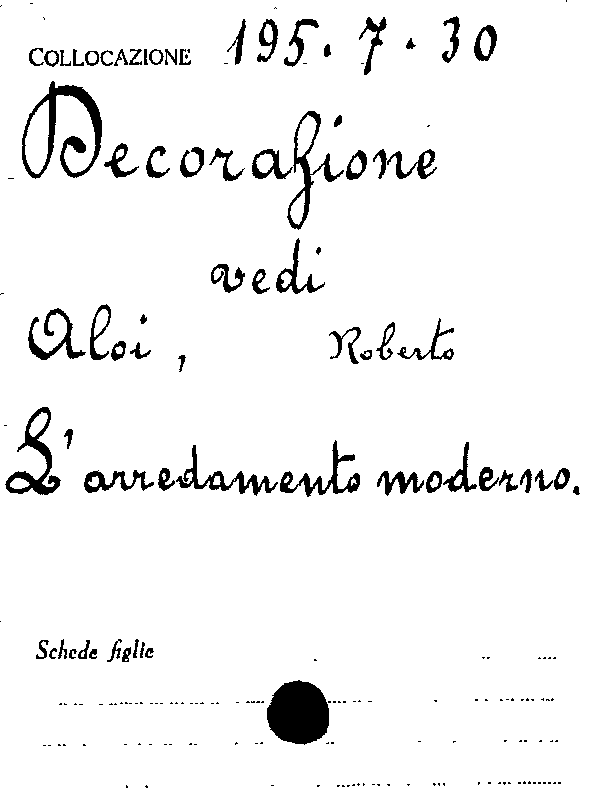 COLLOCAZIONE 195. 7. 30
Decorazione
vedi
Aloi, Roberto
L'arredamento moderno.
Schede figlie